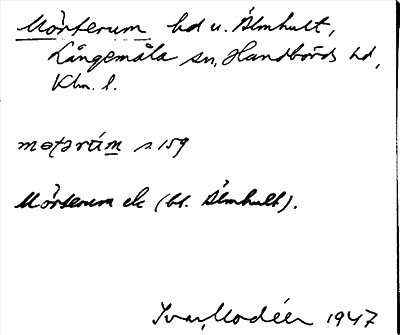 Mörterum hd u. Älmhult,
Långemåla sn, Handbörds hd,
Klm. l.
mǝtarúm s. 159
Mörterum ek (bl. Älmhult).
Ivar Modéer 1947